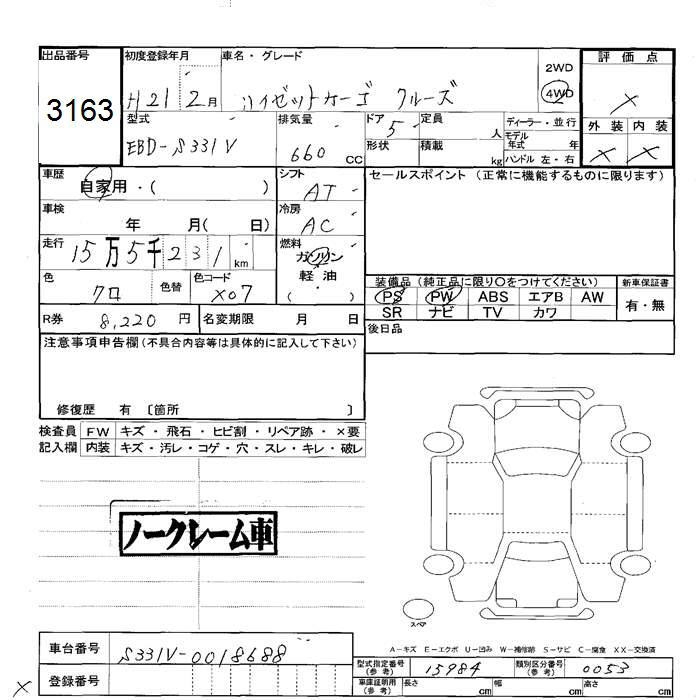 出品番号
3163
初度登録年月
H21 2月
車名・グレード
ハイゼットカーゴ クルーズ
2WD
4WD
評価点
×
型式
EBD-S331V
排気量
660 CC
ドア
5
形状
定員
人
積載
kg
ディーラー・並行
モデル年式 年
ハンドル 左・右
外装 内装
× ×
車歴
自家用・( )
シフト
AT
セールスポイント (正常に機能するものに限ります)
車検
年 月( 日)
冷房
AC
走行
15万5千231km
燃料
ガソリン
軽油
( ・ )
色
クロ
色替
色コード
X07
装備品 (純正品に限り○をつけてください)
新車保証書
PS PW ABS エアB AW
有・無
SR ナビ TV カワ
R券 8,220 円
名変期限 月 日
後日品
注意事項申告欄(不具合内容等は具体的に記入して下さい)
修復歴 有 〔箇所 〕
検査員 FW キズ・飛石・ヒビ割・リペア跡・×要
記入欄 内装 キズ・汚レ・コゲ・穴・スレ・キレ・破レ
ノークレーム車
スペア
A-キズ E-エクボ U-凹み W-補修跡 S-サビ C-腐食 XX-交換済
車台番号 S331V-0018688
登録番号
×
型式指定番号(参考) 15984
類別区分番号(参考) 0053
車庫証明用(参考) 長さ cm 幅 cm 高さ cm